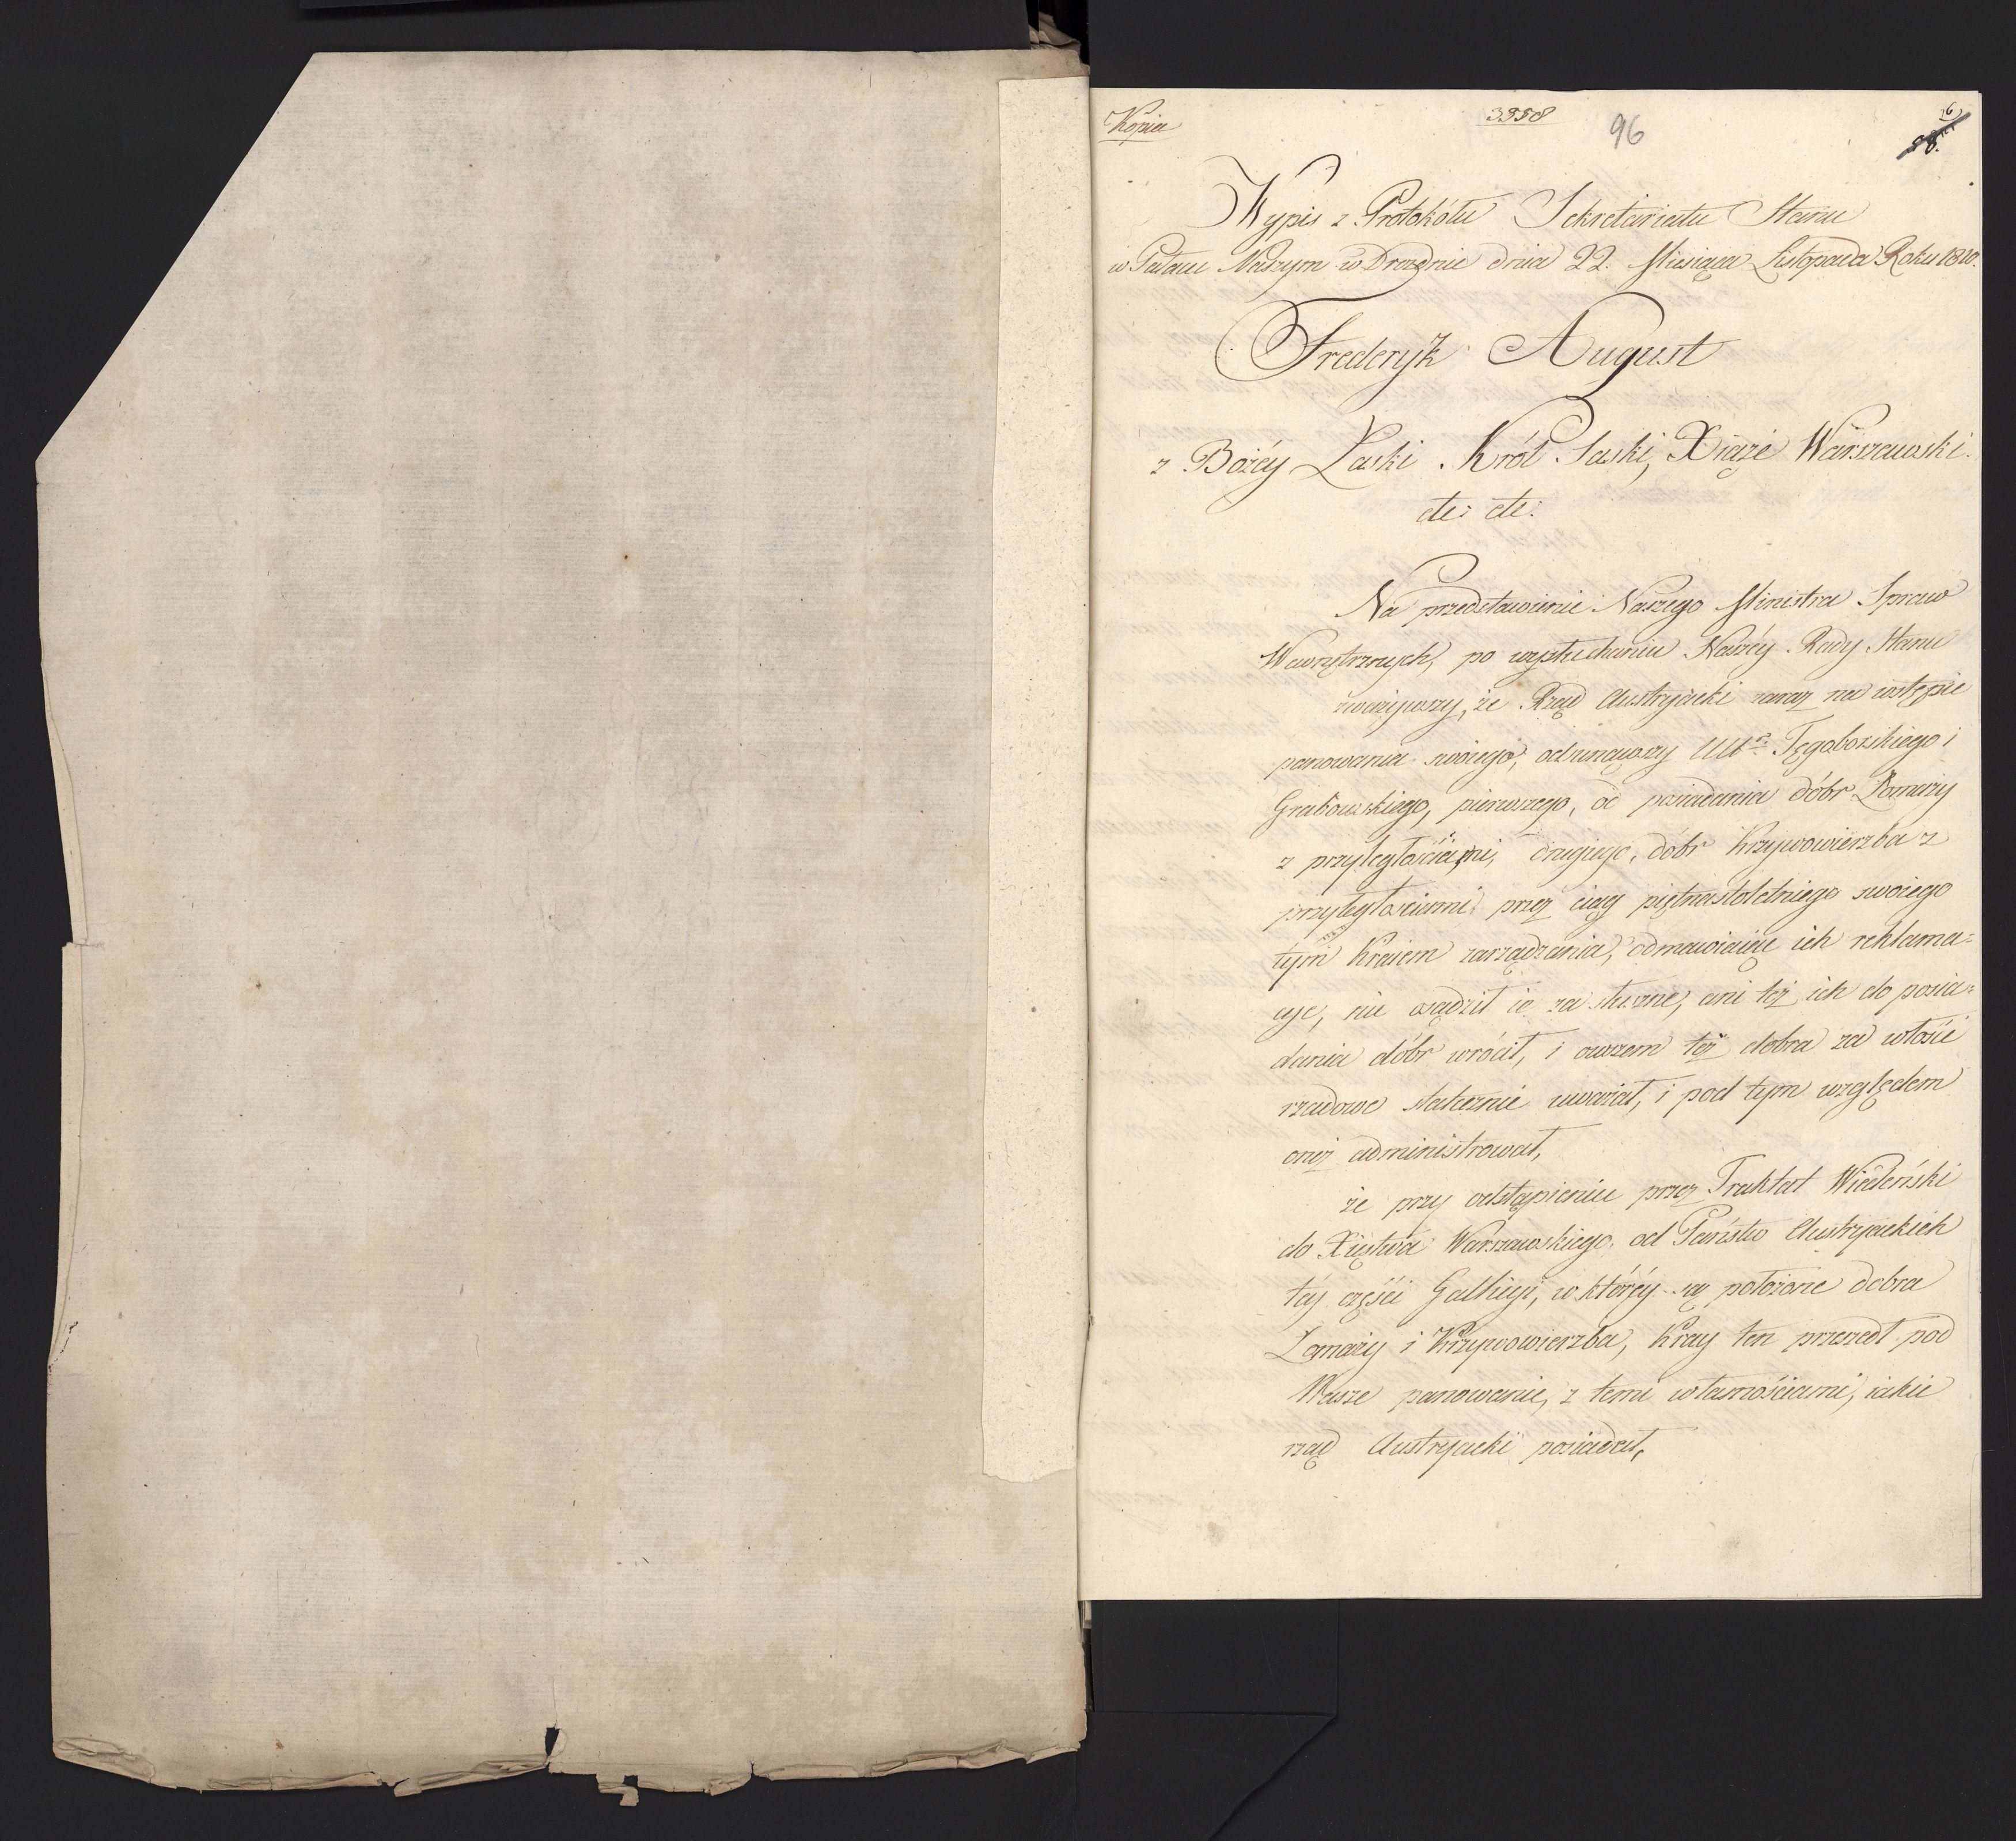 Kopia
3958
96
Wypis z Protokółu Sekretariatu Stanu
w Pałacu Naszym w Dreznie dnia 22. Miesiąca Listopada Roku 1810.
Frederyk August
z Bożey Łaski Król Saski, Xiąże Warszawski.
etc: etc:
Na przedstawienie Naszego Ministra Spraw
Wewnętrznych, po wysłuchaniu Naszéy Rady Stanu
zważywszy, że Rząd Austryacki zaraz na wstępie
panowania swoiego, odsunąwszy UU Tęgoborskiego i
Grabowskiego, pierwszego, od posiadania dóbr Łomazy
z przyległościami, drugiego, dóbr Krzywowierzba z
przyległościami przez ciąg piętnastoletniego swoiego
tym Kraiem zarządzania, odmawiaiąc ich reklama=
cye, nie osądził ie za słuszne, ani też ich do posia=
dania dóbr wrócił, i owszem też dobra za włości
rządowe statecznie uważał, i pod tym względem
oneż administrował,
że przy odstąpieniu przez Traktat Wiedeński
do Xięstwa Warszawskiego, od Państw Austryackich
téy części Gallicyi, w któréy są położone dobra
Łomazy i Krzywowierzba, Kray ten przeszedł pod
Nasze panowanie, z temi własnościami, iakie
rząd Austryacki posiadał,